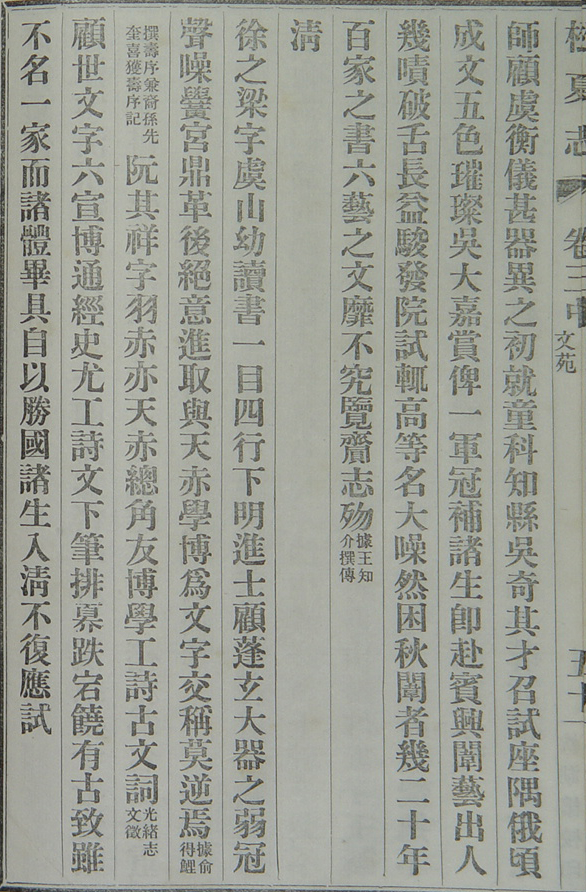 志 卷三中 文苑
師顧虞衡儀甚器異之初就童科知縣吳奇其才召試座隅俄頃
成文五色璀璨吳大嘉賞俾一軍冠補諸生卽赴賓興闈藝出人
幾嘖破舌長益駿發院試輒高等名大噪然困秋闈者幾二十年
百家之書六藝之文靡不究覽齎志歿據王知介撰傳
淸
徐之梁字虞山幼讀書一目四行下明進士顧蓬玄大器之弱冠
聲噪黌宮鼎革後絕意進取與天赤學博爲文字交稱莫逆焉據俞得鯉
撰壽序兼裔孫先奎喜獲壽序記 阮其祥字羽赤亦天赤總角友博學工詩古文詞光緒志文徵
顧世文字六宣博通經史尤工詩文下筆排奡跌宕饒有古致雖
不名一家而諸體畢具自以勝國諸生入淸不復應試